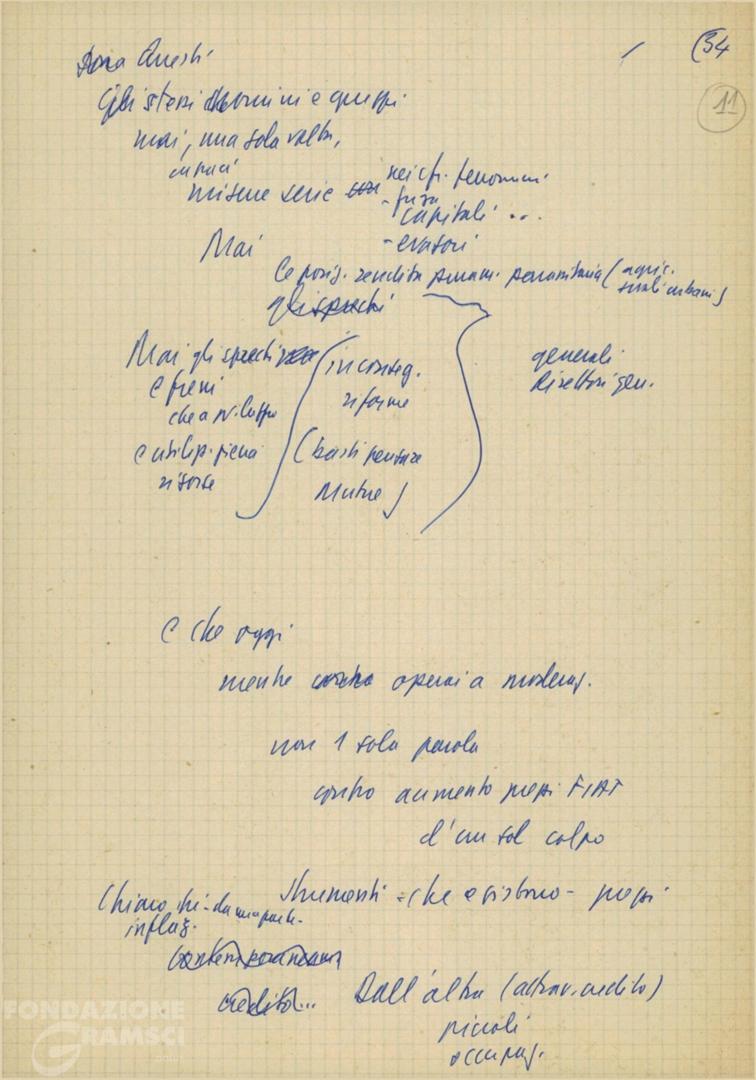 (34
11
Questi
Gli stessi uomini e gruppi.
mai, una sola volta,
misure serie
nei cfr. fenomeni
- fuga
capitali ...
- evasori
Mai
le posiz. rendita parassitaria (agric.
suoli urbani)
gli sprechi
Mai gli sprechi
e freni
che a sviluppo
e utiliz. piena
risorse
(inconseg.
riforme
(basti pensare
Mutue)
generali
Direttori gen.
e che oggi
mentre operai a moderaz.
non 1 sola parola
contro aumento prezzi FIAT
d'un sol colpo
Strumenti - che esistono - prezzi
Chiaro chi - da una parte -
inflaz.
contemporaneam
credito...
Dall'altra (attrav. credito)
piccoli
occupaz.
FONDAZIONE
GRAMSCI